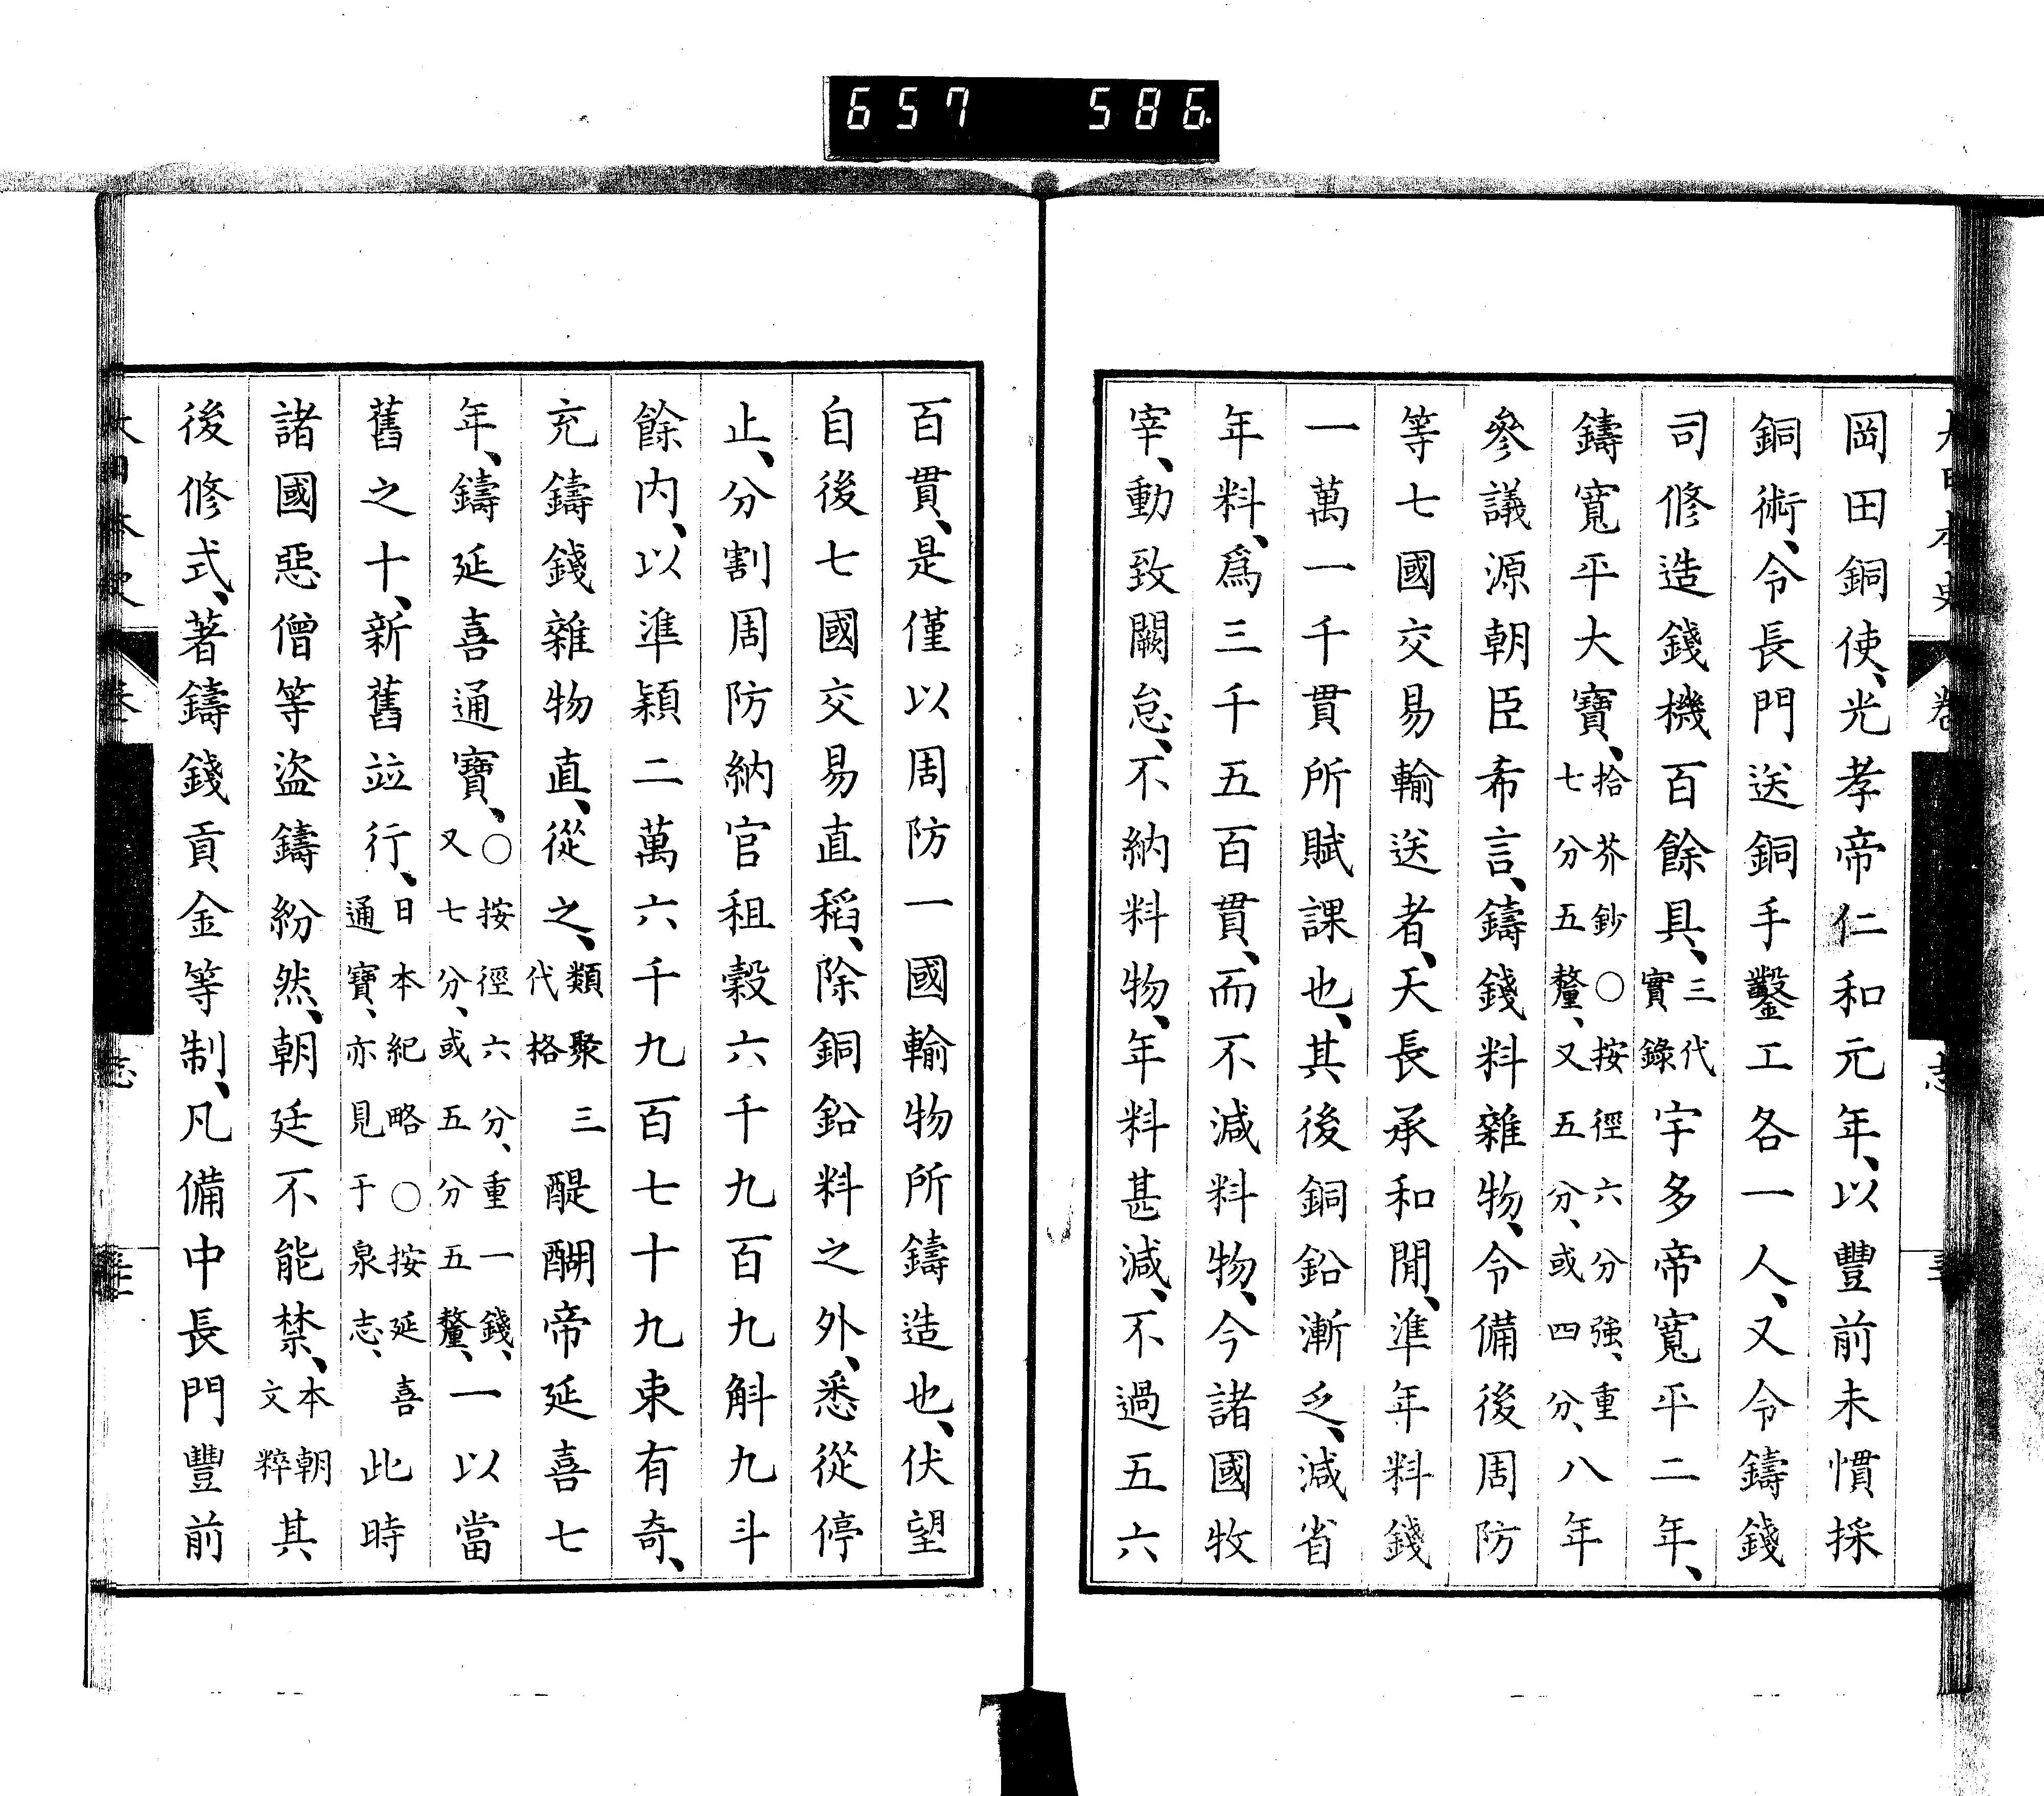 657 586.
岡田銅使、光孝帝仁和元年、以豐前未慣採
銅術、令長門送銅手鑿工各一人、又令鑄錢
司修造錢機百餘具、三代實錄宇多帝寬平二年、
鑄寬平大寶、拾芥鈔○按徑六分強、重七分五釐、又五分、或四分、八年
參議源朝臣希言、鑄錢料雜物、令備後周防
等七國交易輸送者、天長承和閒、準年料錢
一萬一千貫所賦課也、其後銅鉛漸乏、減省
年料、爲三千五百貫、而不減料物、今諸國牧
宰、動致闕怠、不納料物、年料甚減、不過五六
百貫、是僅以周防一國輸物所鑄造也、伏望
自後七國交易直稻、除銅鉛料之外、悉從停
止、分割周防納官租穀六千九百九斛九斗
餘内、以準穎二萬六千九百七十九束有奇、
充鑄錢雜物直、從之、類聚三代格醍醐帝延喜七
年、鑄延喜通寶、○按徑六分、重一錢、又七分、或五分五釐、一以當
舊之十、新舊竝行、日本紀略○按延喜通寶、亦見于泉志、此時
諸國惡僧等盜鑄紛然、朝廷不能禁、本朝文粹其
後修式、著鑄錢貢金等制、凡備中長門豐前